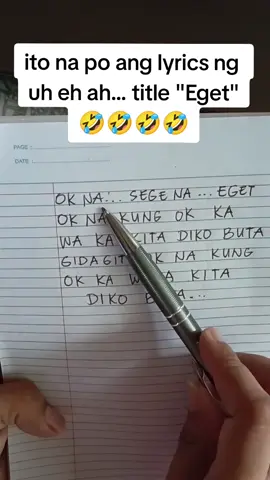 ito na po ang lyrics ng
uh eh ah... title "Eget"
🤣🤣🤣🤣
PAGE:
DATE:
OK NA... SEGE NA... EGET
OK NA KUNG OK KA
WA KA KITA DIKO BUTA
GIDAGIT OK NA KUNG
OK KA WA KA KITA
DIKO BUTA...